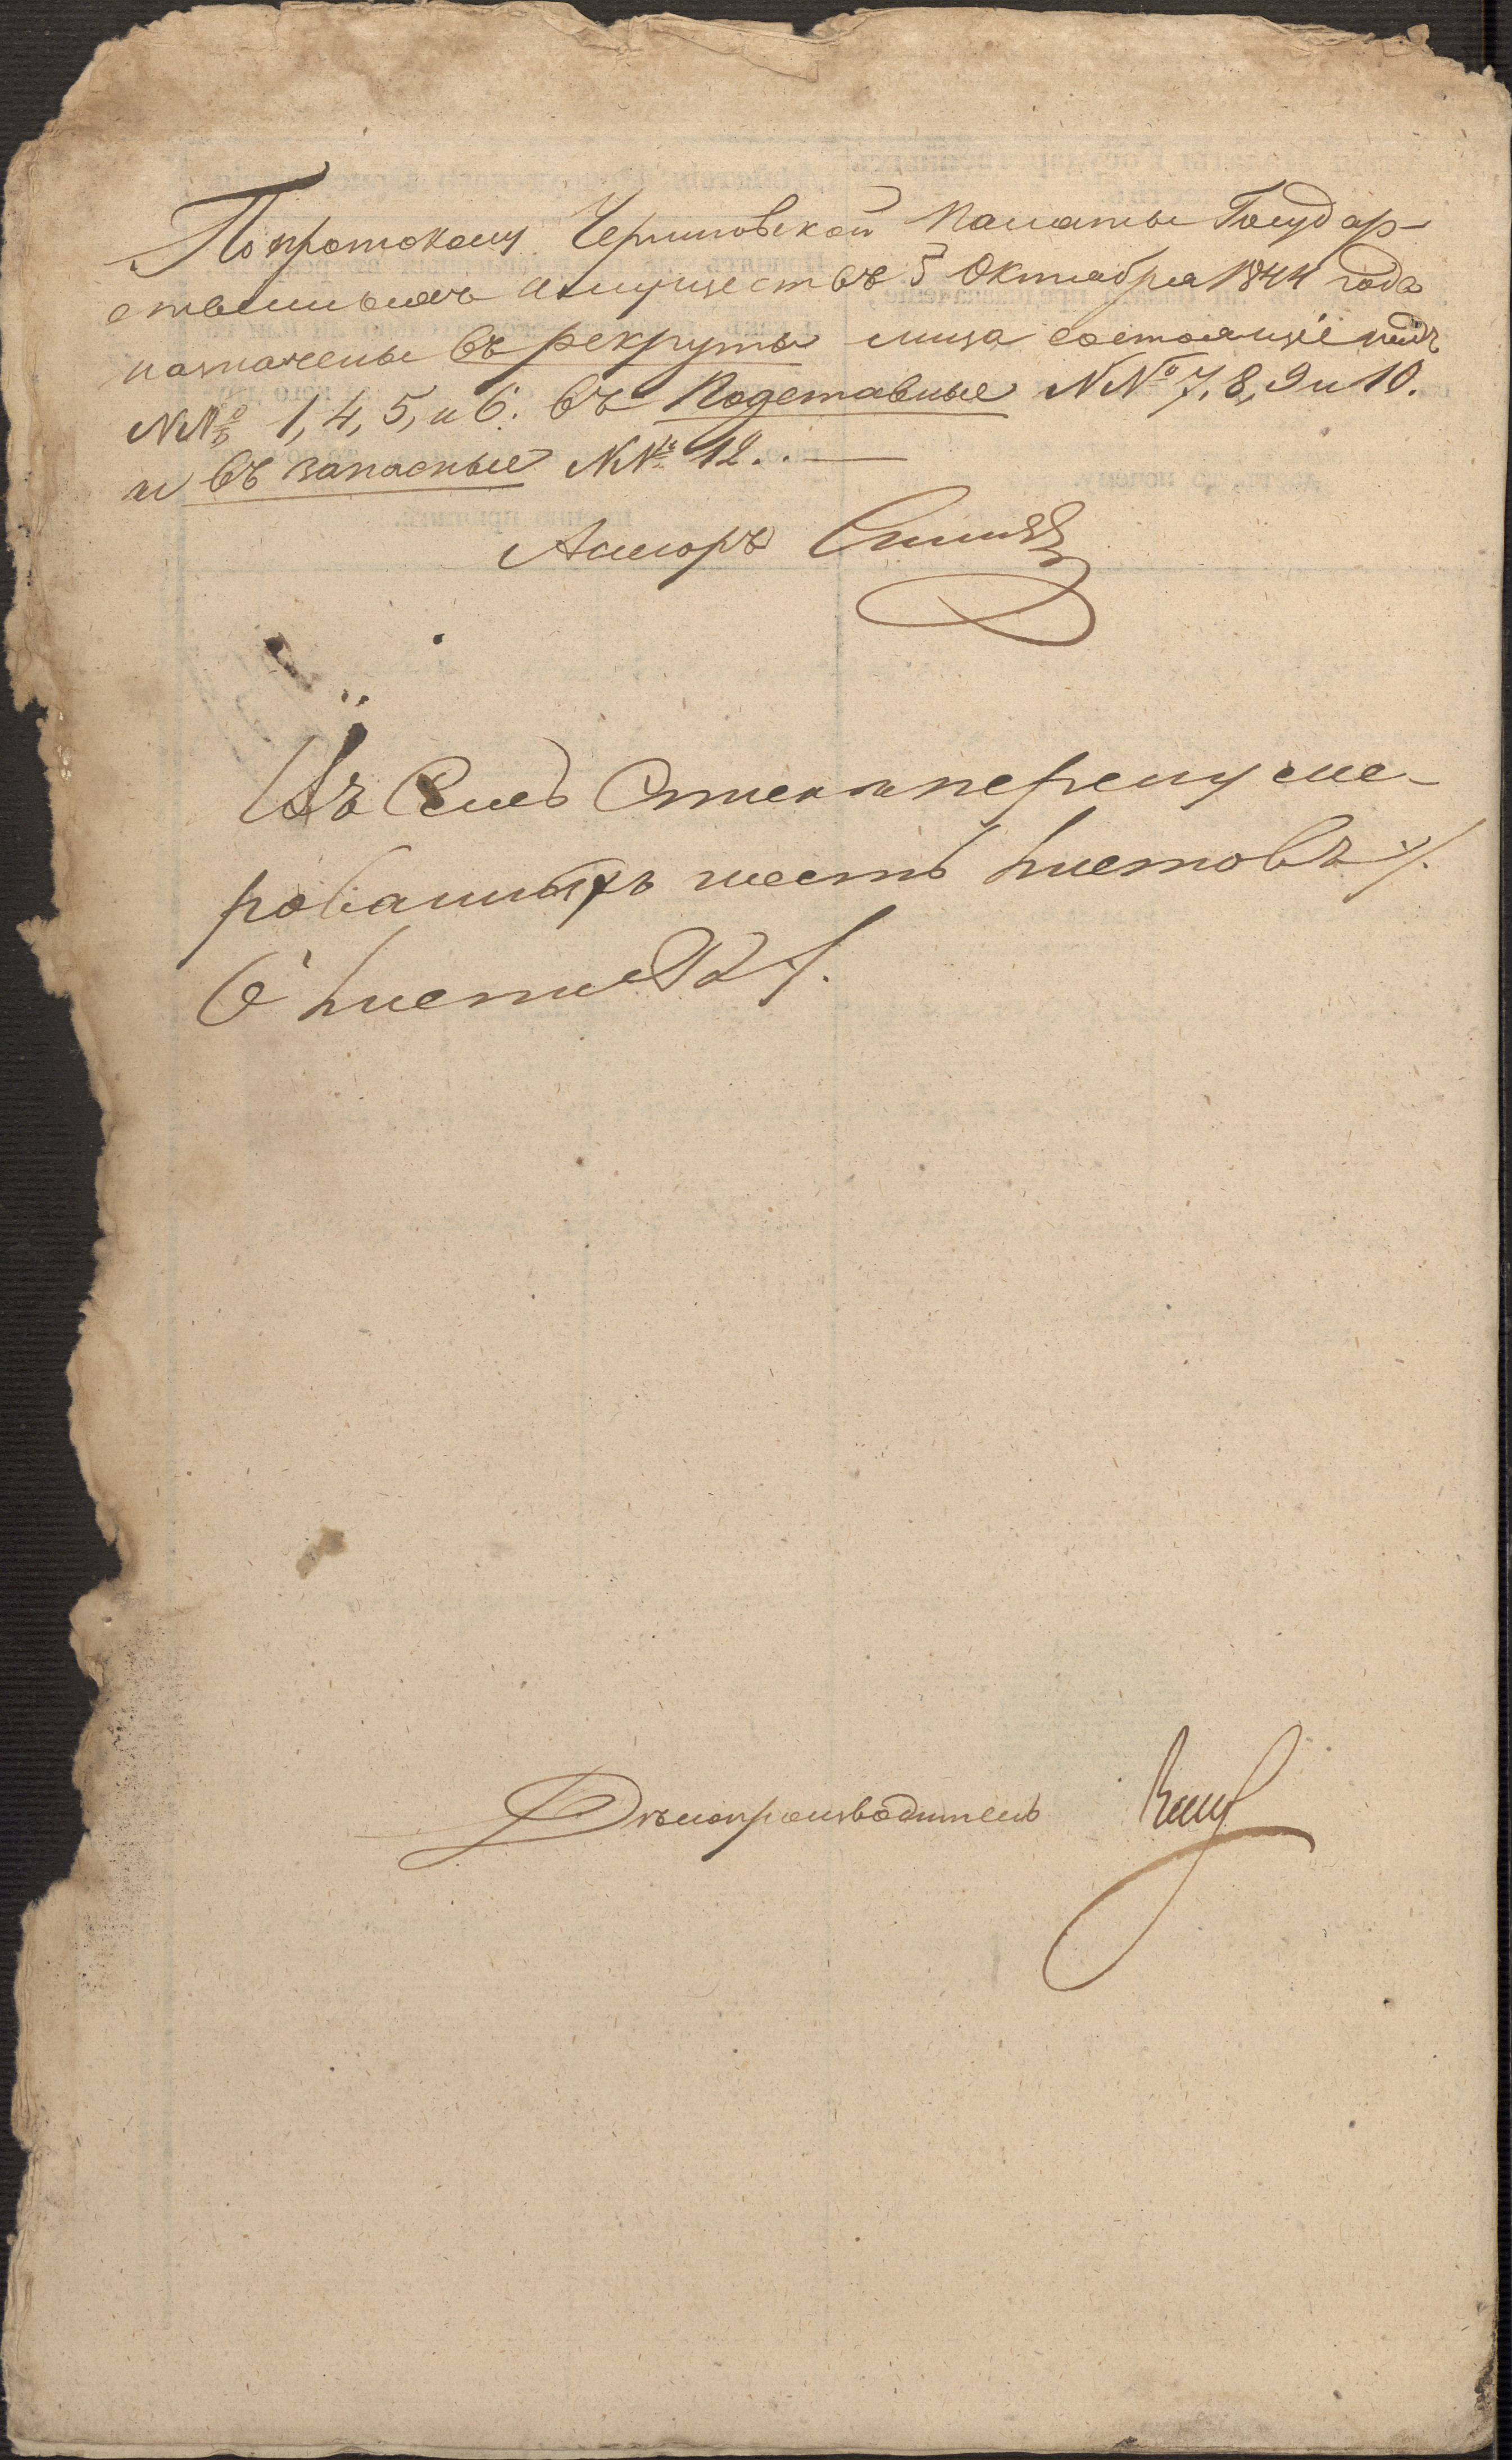 По протоколу Черниговской Палаты Государ-
ственныхъ имуществъ 5 Октября 1844 года
назначены въ рекруты лица состоящіе подъ
№№ 1, 4, 5, и 6. въ Подставные №№ 7, 8, 9 и 10.
и въ запасные №№ 12..
Асесоръ
Въ Семъ Спискѣ перенуме-
рованныхъ шесть листовъ ·/.
6 листовъ ·/.
Дѣлопроизводитель